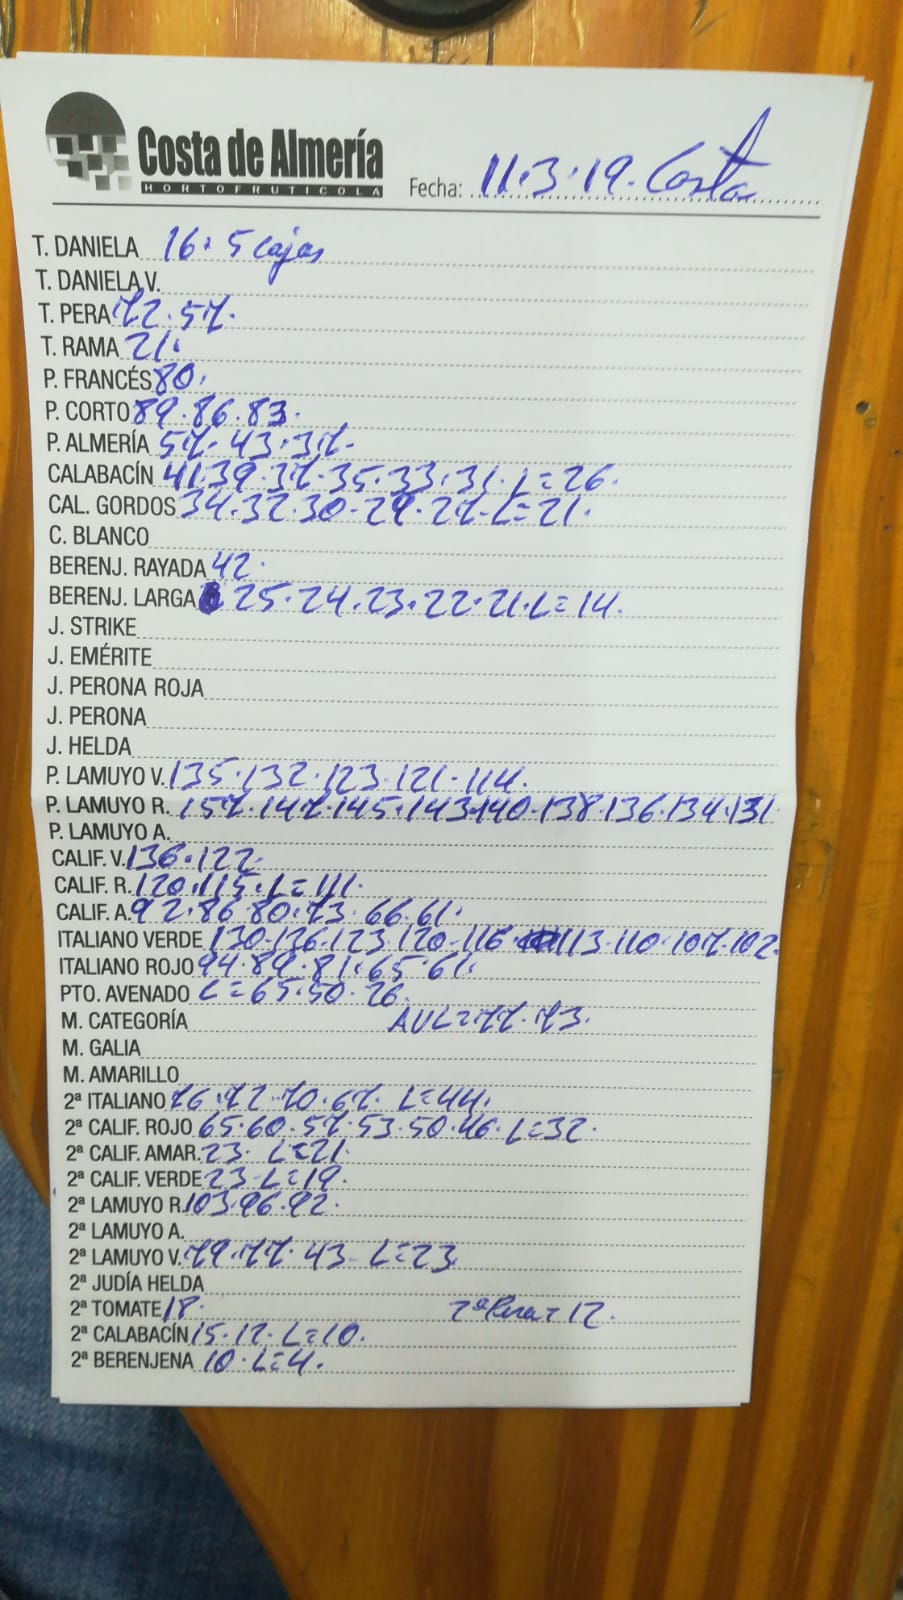 Costa de Almería
HORTOFRUTICOLA
Fecha: 11.3.19. Costa
T. DANIELA 16. 5 cajas
T. DANIELA V.
T. PERA 72. 57.
T. RAMA 21.
P. FRANCÉS 80.
P. CORTO 89. 86. 83.
P. ALMERÍA 57. 43. 37.
CALABACÍN 41. 39. 37. 35. 33. 31. L=26.
CAL. GORDOS 34. 32. 30. 29. 27. L=21.
C. BLANCO
BERENJ. RAYADA 42.
BERENJ. LARGA 25. 24. 23. 22. 21. L=14.
J. STRIKE
J. EMÉRITE
J. PERONA ROJA
J. PERONA
J. HELDA
P. LAMUYO V. 135. 132. 123. 121. 114.
P. LAMUYO R. 157. 147. 145. 143. 140. 138. 136. 134. 131
P. LAMUYO A.
CALIF. V. 136. 122.
CALIF. R. 120. 115. L=111.
CALIF. A. 92. 86. 80. 73. 66. 61.
ITALIANO VERDE 130. 136. 123. 120. 116. 113. 110. 107. 102.
ITALIANO ROJO 94. 89. 81. 65. 61.
PTO. AVENADO L=65. 50. 26.
M. CATEGORÍA AVL=77. 73.
M. GALIA
M. AMARILLO
2ª ITALIANO 76. 72. 70. 67. L=44.
2ª CALIF. ROJO 65. 60. 57. 53. 50. 46. L=32.
2ª CALIF. AMAR. 23. L=21.
2ª CALIF. VERDE 23. L=19.
2ª LAMUYO R. 103. 96. 92.
2ª LAMUYO A.
2ª LAMUYO V. 79. 77. 43. L=23
2ª JUDÍA HELDA
2ª TOMATE 18. 2ª Pera = 12.
2ª CALABACÍN 15. 12. L=10.
2ª BERENJENA 10. L=4.